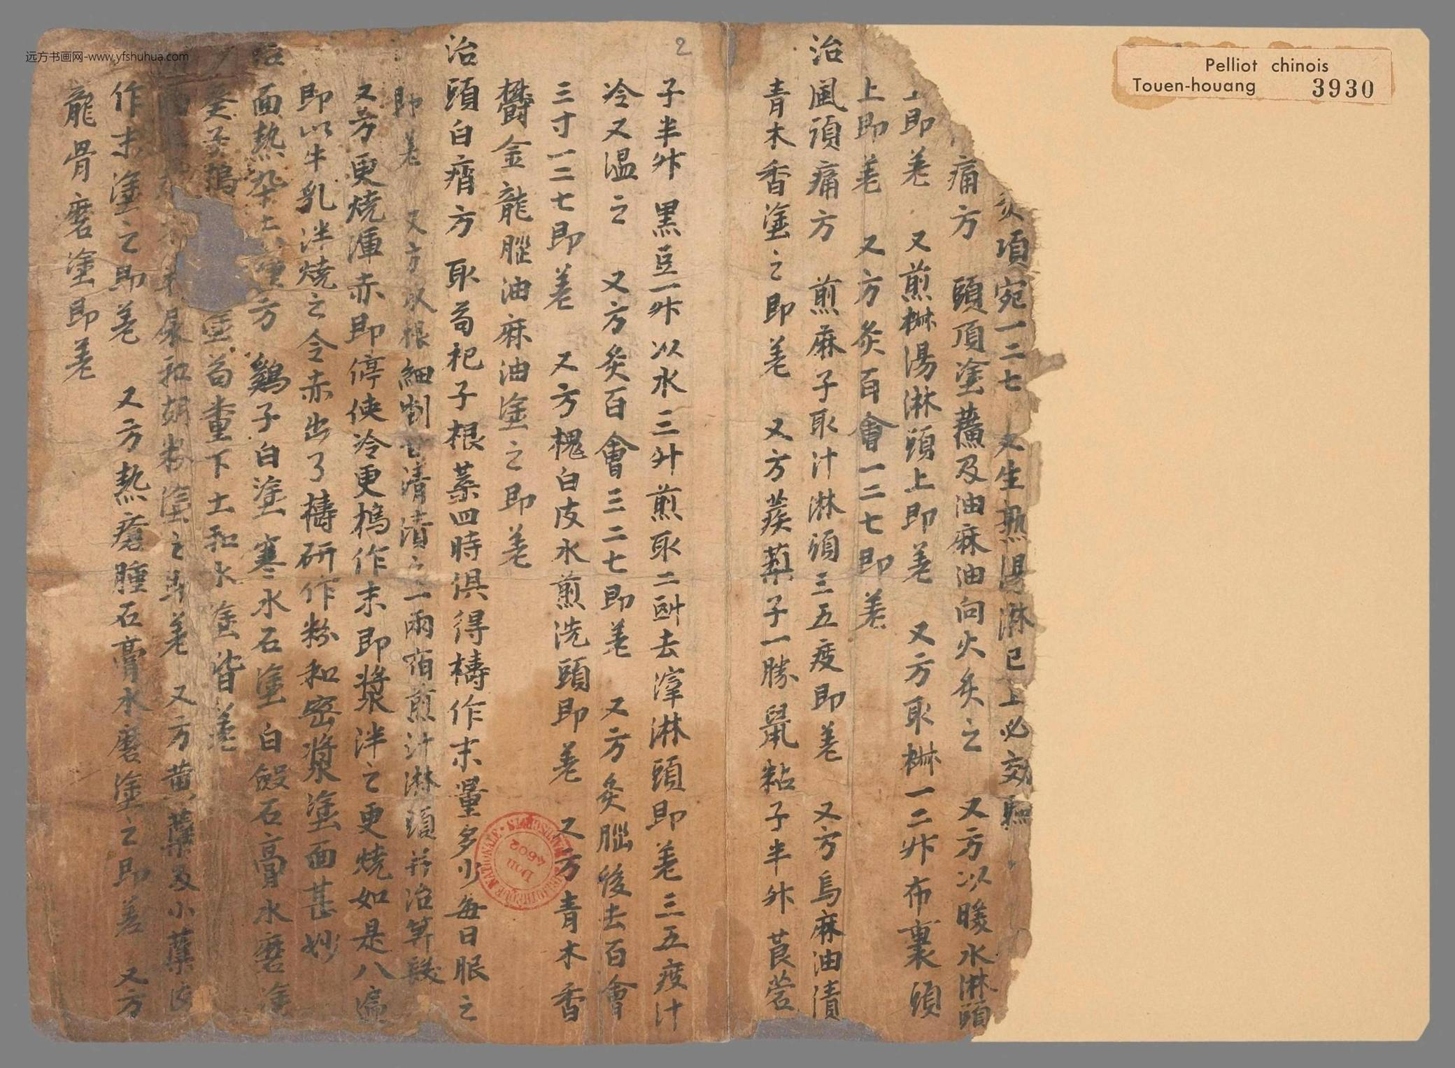 远方书画网-www.yfshuhua.com
Pelliot chinois
Touen-houang 3930
2
項宛一二七 又生熟湯淋已上必效
痛方 頭頂塗蘸及油麻油向火炙之 又方以暖水淋頭
上即差 又煎椒湯淋頭上即差 又方取椒一二升布裹頭
上即差 又方灸百會一二七即差
治風頭痛方 煎麻子取汁淋頭三五度即差 又方烏麻油漬
青木香塗之即差 又方蒺蔾子一勝鼠粘子半升莨菪
子半升黑豆一升以水三升煎取二升去滓淋頭即差三五度汁
冷又温之 又方灸百會三二七即差 又方灸腦後去百會
三寸一二七即差 又方槐白皮水煎洗頭即差 又方青木香
欝金龍腦油麻油塗之即差
治頭白屑方 取苟杞子根葉四時俱得擣作末量多少每日服之
即差 又方以根細剉甘清漬之一兩宿煎汁淋頭并治
又方更燒渾赤即停使冷更搗作末即漿泮之更燒如是八遍
即以牛乳泮燒之令赤出了擣研作粉和密漿塗面甚妙
治面熱 方 鷄子白塗 寒水石塗 白 石膏水磨塗
塗 下土和水塗皆差
尿和胡粉塗之即差 又方黄蘗及小蘗
作末塗之即差 又方熱瘡腫石膏水磨塗之即差 又方
龍骨磨塗即差
Don
4502